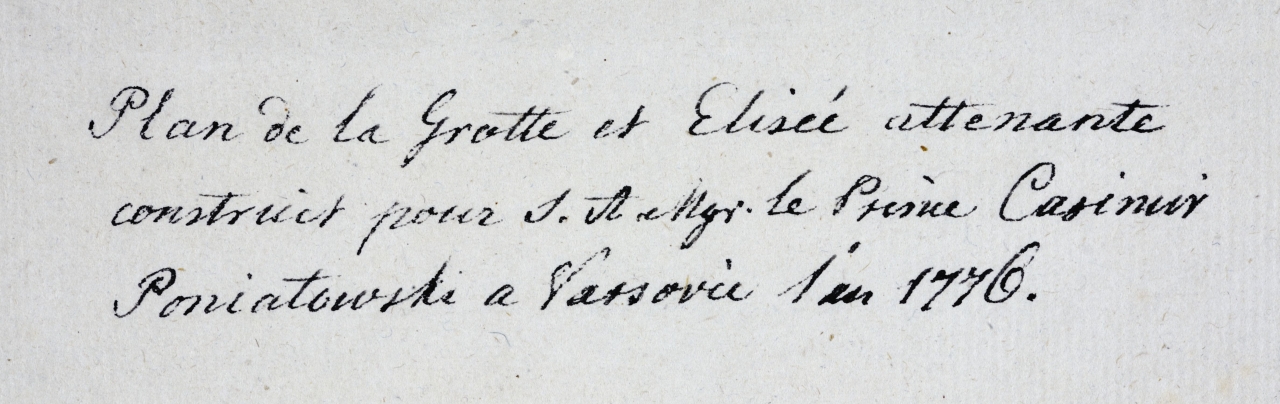 Plan de la Grotte et Elisée attenante
construict pour S. A Mgr. le Prince Casimir
Poniatowski a Varsovie l'an 1776.